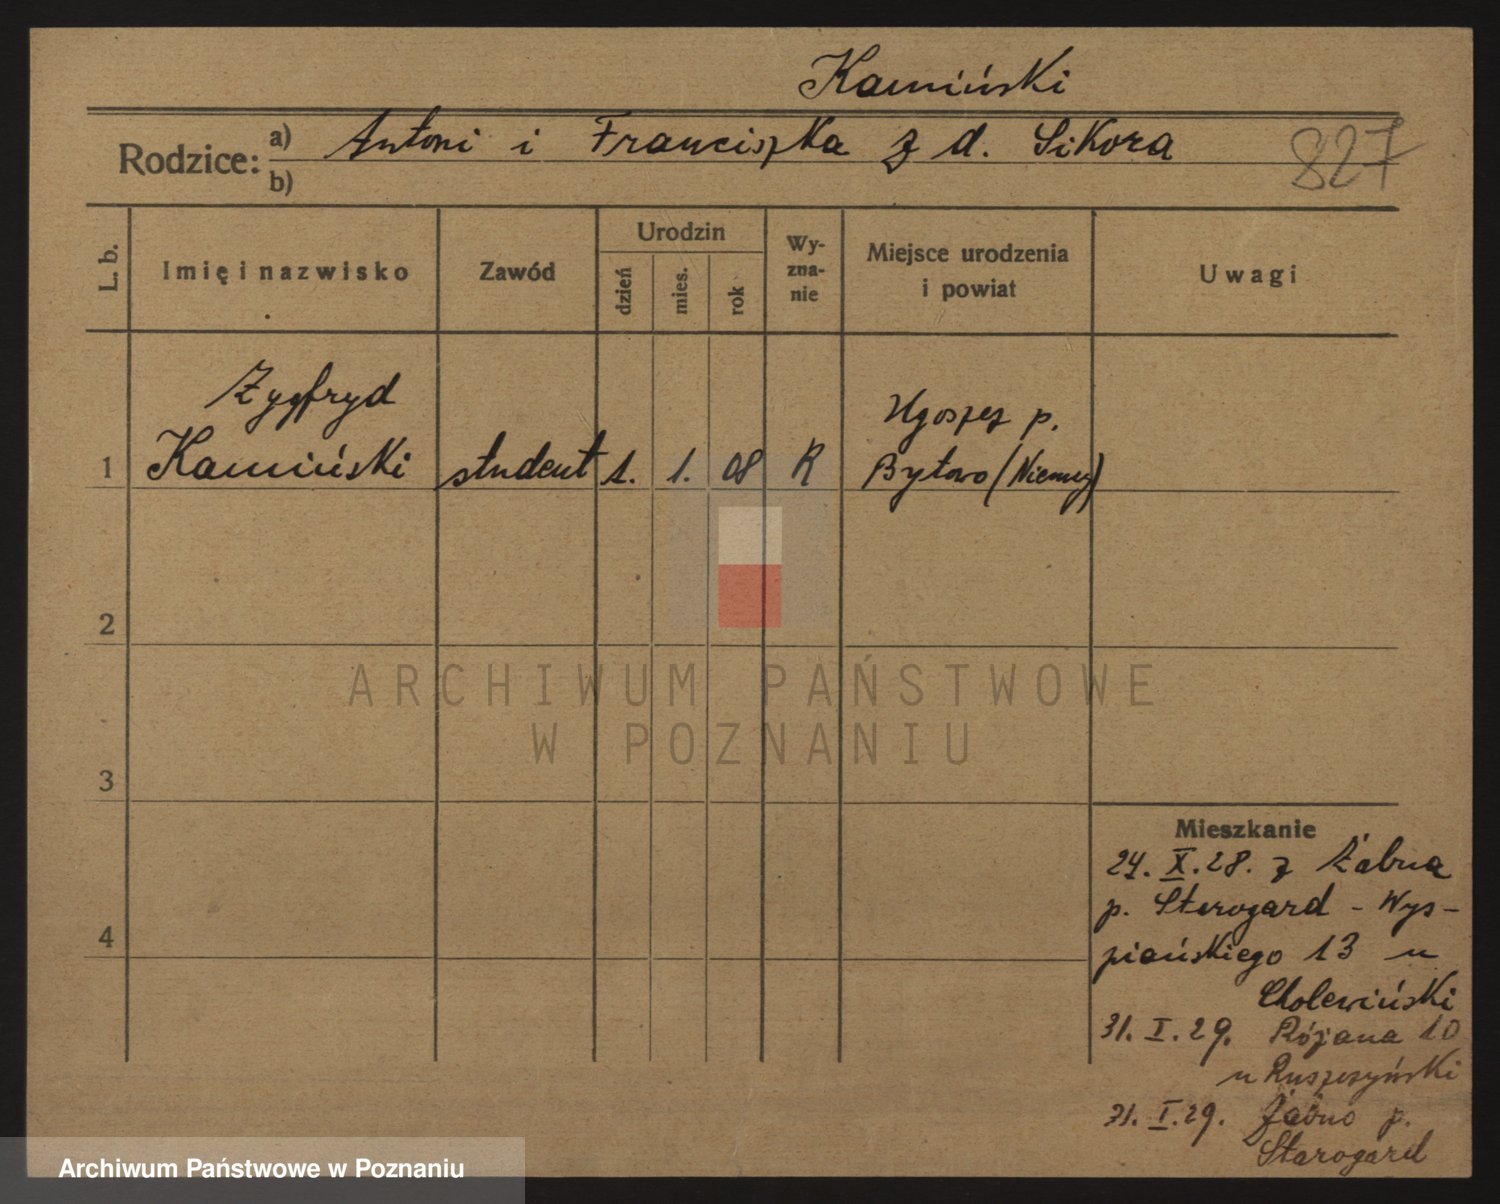 Kamiński
Rodzice: a) Antoni i Franciszka z d. Sikora
b)
827
L. b.
Imię i nazwisko
Zawód
Urodzin
dzień
mies.
rok
Wy-
zna-
nie
Miejsce urodzenia
i powiat
Uwagi
Zygfryd
Ugoszcz p.
1 Kamiński student 1. 1. 08 R Bytowo (Niemcy)
2
3
4
Mieszkanie
24. X. 28. z Żabna
p. Starogard - Wys-
piańskiego 13 u
Cholewiński
31. I. 29. Różana 10
u Ruszczyński
31. I. 29. Żabno p.
Starogard
ARCHIWUM PAŃSTWOWE
W POZNANIU
Archiwum Państwowe w Poznaniu